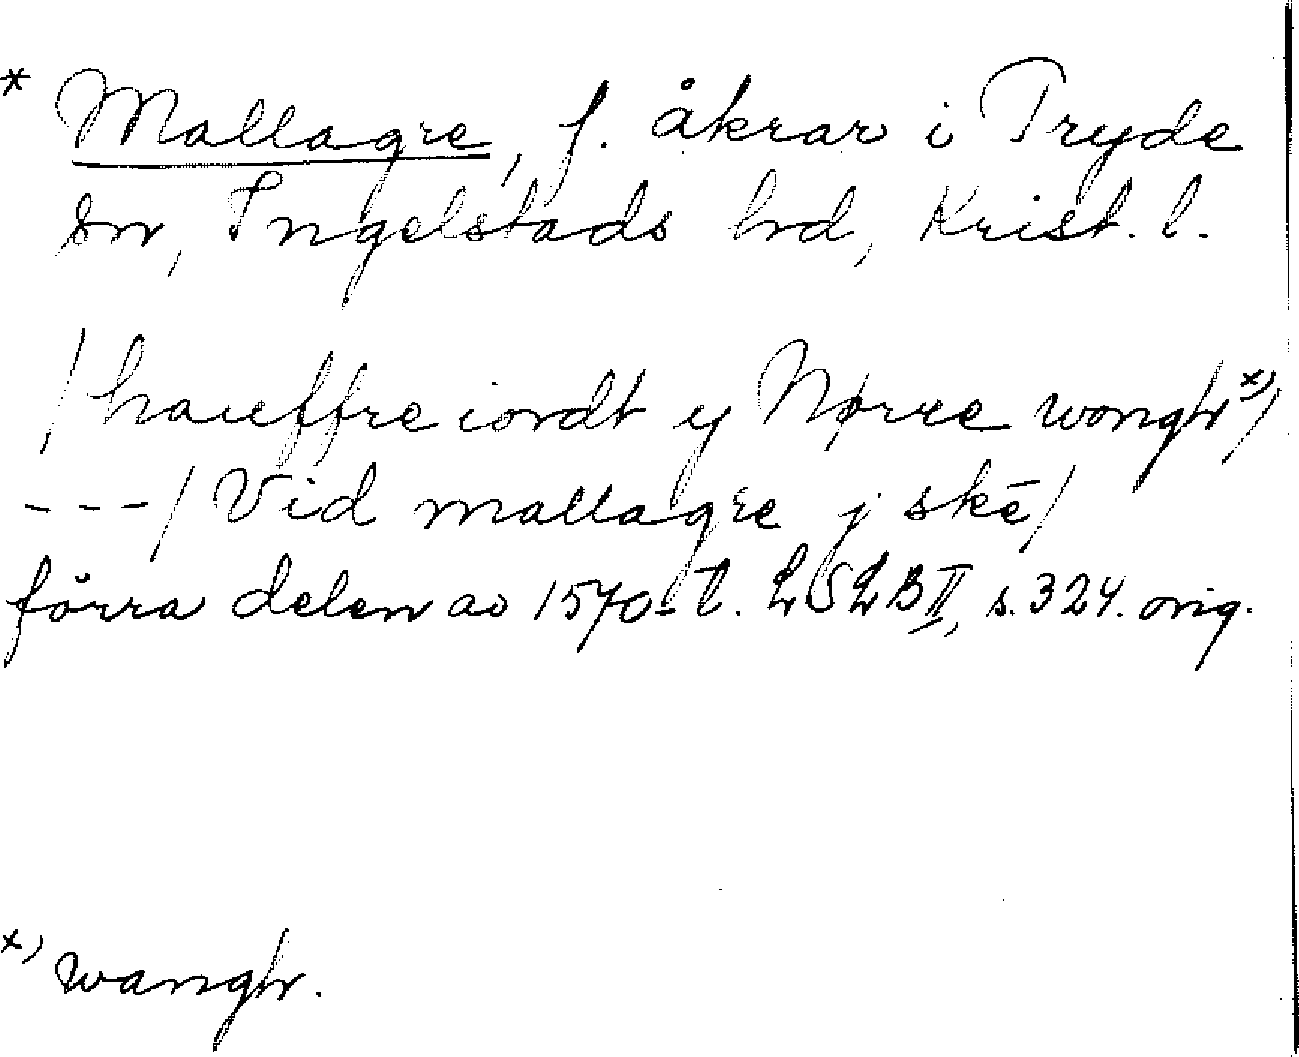 * Mallagre, f. åkrar i Tryde
sn, Ingelstads hd, Krist. l.
/ haueffre iordt y Nørre wongh x)/
---/ Vid mallagre j skē/
förra delen av 1570-t. LSLB II, s. 324. orig.
x) wangh.